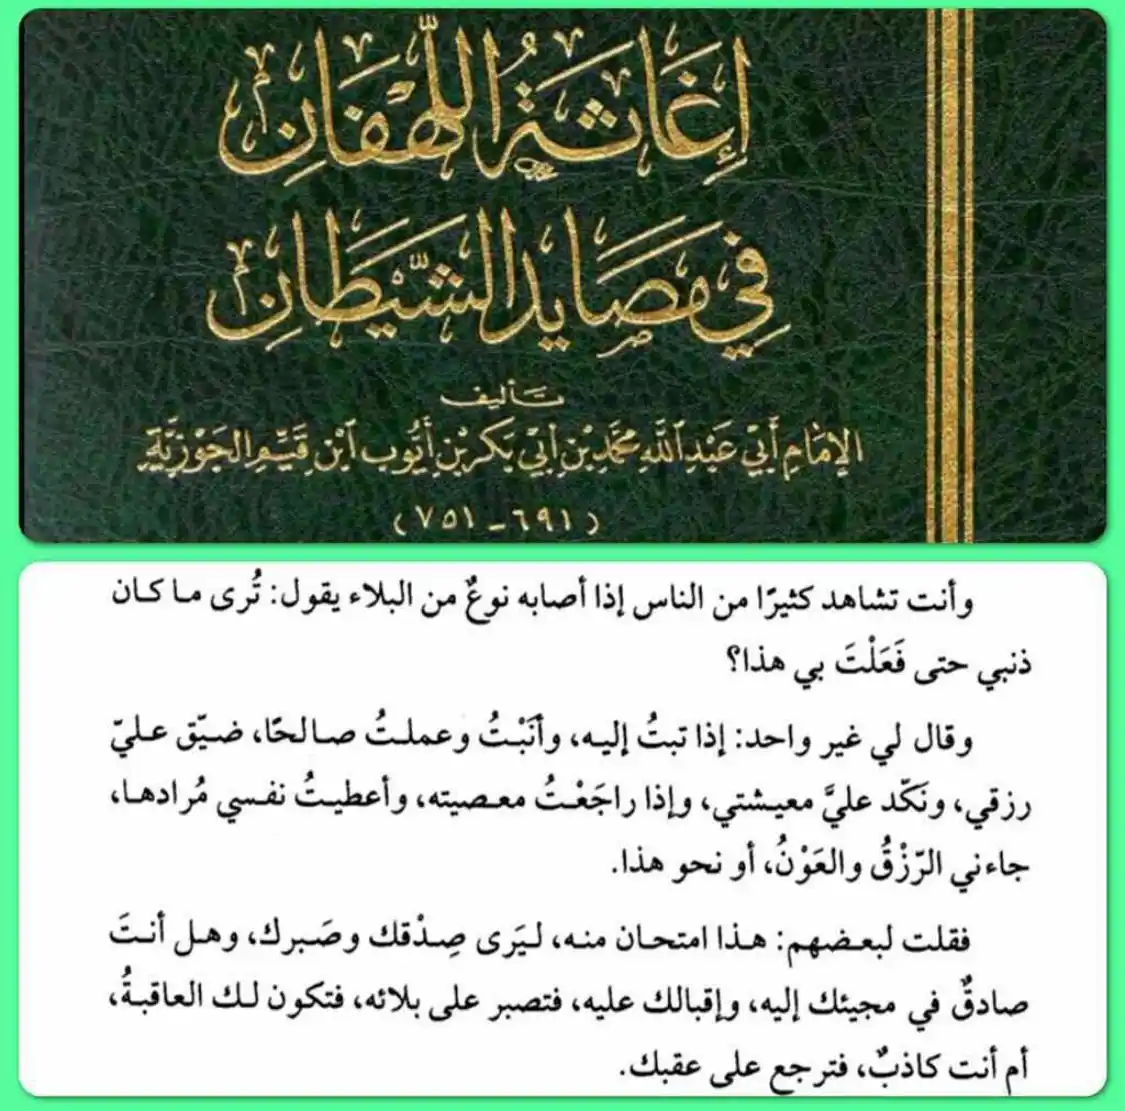 إِغَاثَةُ اللَّهْفَانِ
فِي مَصَايِدِ الشَّيْطَانِ
تَأليف
الإِمَامِ أَبِي عَبْدِ اللَّهِ مُحَمَّدِ بْنِ أَبِي بَكْرِ بْنِ أَيُّوبَ ابْنِ قَيِّمِ الْجَوْزِيَّةِ
(٦٩١ - ٧٥١)
وأنت تشاهد كثيرًا من الناس إذا أصابه نوعٌ من البلاء يقول: تُرى ما كان
ذنبي حتى فَعَلْتَ بي هذا؟
وقال لي غير واحد: إذا تبتُ إليه، وأنَبْتُ وعملتُ صالحًا، ضيّق عليّ
رزقي، ونَكّد عليَّ معيشتي، وإذا راجَعْتُ معصيته، وأعطيتُ نفسي مُرادها،
جاءني الرّزْقُ والعَوْنُ، أو نحو هذا.
فقلت لبعضهم: هذا امتحان منه، ليَرى صِدْقك وصَبرك، وهل أنتَ
صادقٌ في مجيئك إليه، وإقبالك عليه، فتصبر على بلائه، فتكون لك العاقبةُ،
أم أنت كاذبٌ، فترجع على عقبك.